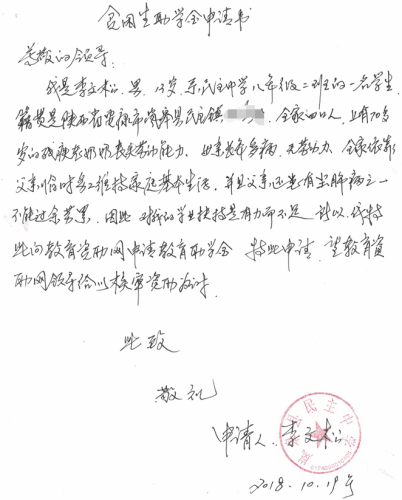 贫困生助学金申请书
尊敬的领导:
我是李文松、男、13岁,系民主中学八年级二班的一名学生
籍贯是陕西省安康市岚皋县民主镇 全家四口人,上有70多
岁的残疾老奶奶丧失劳动能力、 长年多病,无劳动力、全家依靠
父亲临时务工维持家庭基本生活,并且父亲还患有
不能过余劳累,因此对我的学业扶持是有力而不足 所以,我特
此向教育资助网申请教育助学金 特此申请,望教育资
助网领导给以核审资助为盼
此致
敬礼
申请人、李文松
县民主中学
2018.10.19号